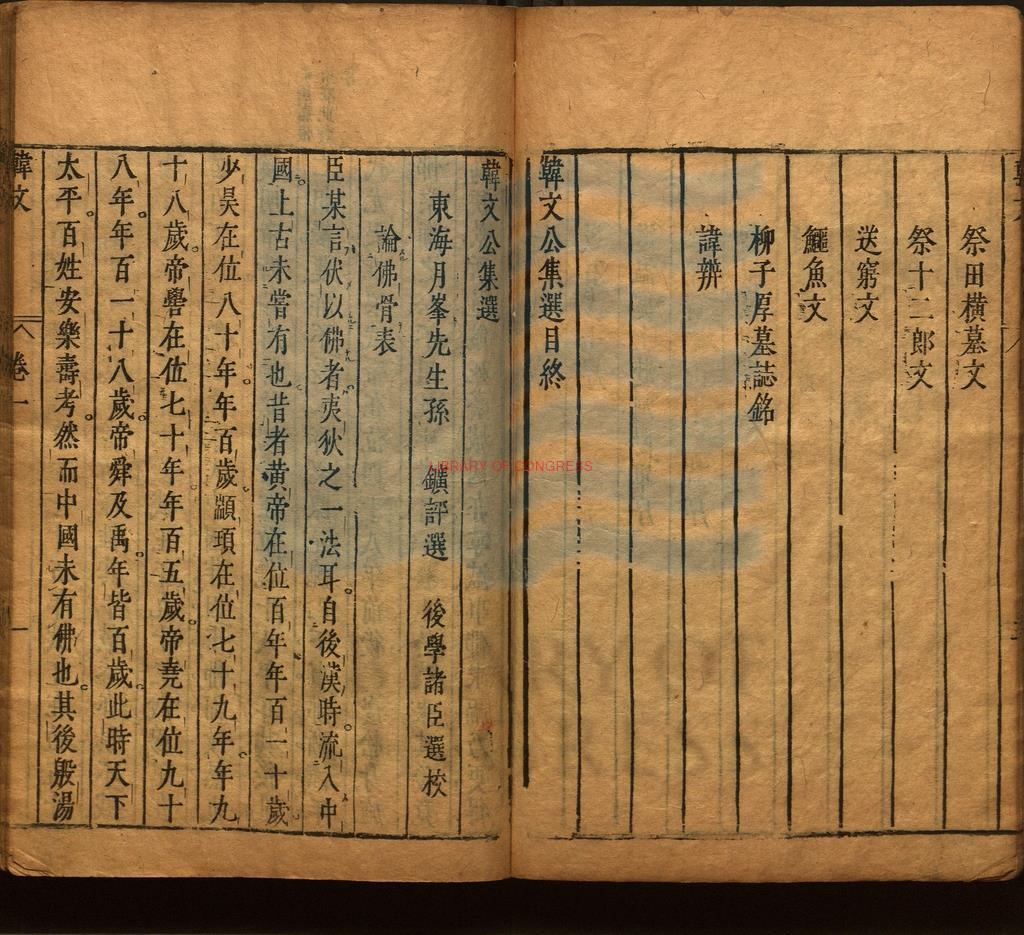 祭田橫墓文
祭十二郎文
送窮文
鱷魚文
柳子厚墓誌銘
諱辨
韓文公集選目終
韓文公集選
東海月峯先生孫 鑛評選 後學諸臣選校
論佛骨表
臣某言伏以佛者夷狄之一法耳。自後漢時。流入中
國。上古未嘗有也昔者黃帝在位百年年百一十歲
少昊在位八十年。年百歲顓頊在位七十九年。年九
十八歲。帝嚳在位七十年年百五歲。帝堯在位九十
八年。年百一十八歲。帝舜及禹。年皆百歲。此時天下
太平。百姓安樂壽考。然而中國未有佛也。其後殷湯
韓文 卷一 一
LIBRARY OF CONGRESS